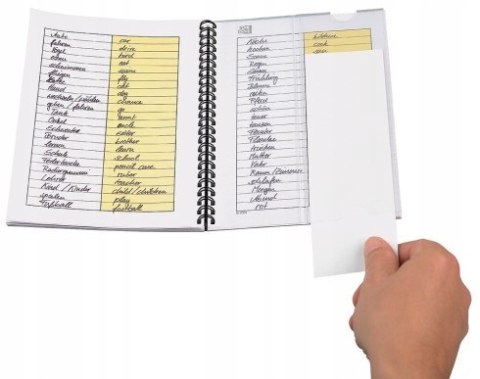 fahren drive
Vogel bird
essen eat
schwimmen swim
fliegen fly
Katze cat
Hund dog
change
gehen / fahren go
Tante aunt
Onkel uncle
Schwester sister
Bruder
lernen learn
Schule school
pencil case
Radiergummi rubber
Lehrer teacher
Kind / Kinder child/children
spielen play
Fußball football
Küche kitchen
kochen cook
Sonne sun
Regen
Frühling
Blumen
Pferd
schön
Fenster
Flasche
trinken
Mutter
Vater
Raum / Zimmer
schlafen
Morgen
Abend
rot